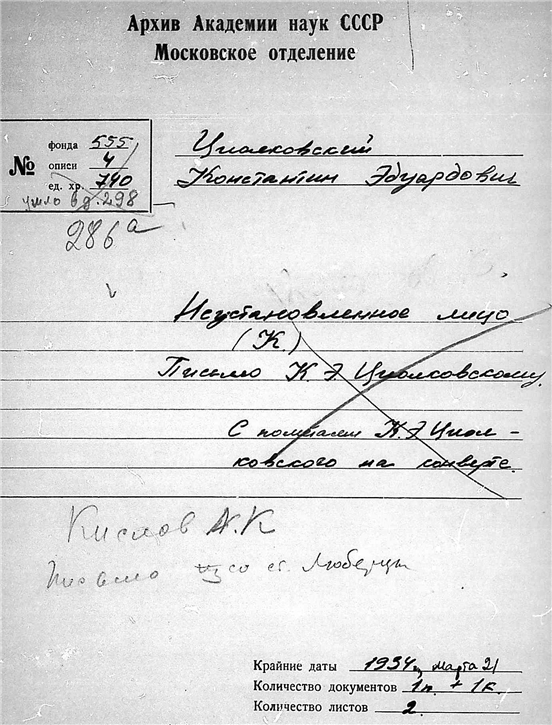 Архив Академии наук СССР
Московское отделение
№
фонда 555
описи 4
ед. хр. 740
ушло в д. 298
286а
Циолковский
Константин Эдуардович
Неустановленное лицо
(К.)
Письмо К. Э. Циолковскому.
С пометами К.Э Циол-
ковского на конверте.
Кислов А.К
Письмо со ст. Люберцы
Крайние даты 1934, марта 21
Количество документов 1п. + 1к.
Количество листов 2